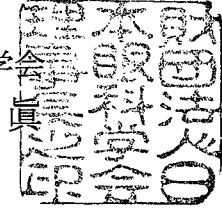 学会
眞
財団法人日
本眼科学会
理事長之印